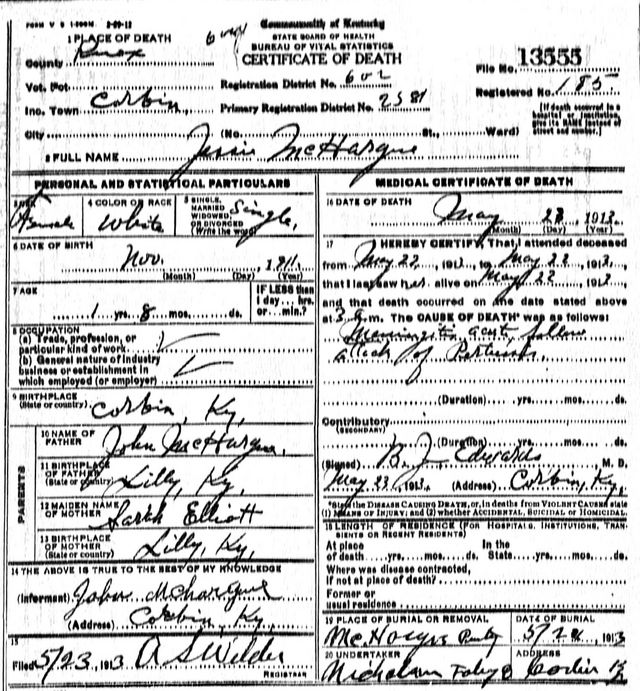 FORM V S 1-500M. 2-29-12
Commonwealth of Kentucky
STATE BOARD OF HEALTH
BUREAU OF VITAL STATISTICS
CERTIFICATE OF DEATH
1 PLACE OF DEATH
County Knox
File No. 13555
Vot. Pct.
Registration District No. 602
Registered No. 185
Inc. Town Corbin
Primary Registration District No. 2381
[If death occurred in a hospital or institution, give its NAME instead of street and number.]
City (No. St., Ward)
2 FULL NAME Jessie McHargue
PERSONAL AND STATISTICAL PARTICULARS
3 SEX Female
4 COLOR OR RACE White
5 SINGLE, MARRIED, WIDOWED, OR DIVORCED (Write the word) Single,
6 DATE OF BIRTH Nov. , 1911.
(Month) (Day) (Year)
7 AGE 1 yrs. 8 mos. ds.
IF LESS than 1 day... hrs. or... min.?
8 OCCUPATION
(a) Trade, profession, or particular kind of work
(b) General nature of industry business or establishment in which employed (or employer)
9 BIRTHPLACE (State or country) Corbin, Ky,
PARENTS
10 NAME OF FATHER John McHargue,
11 BIRTHPLACE OF FATHER (State or country) Lilly, Ky,
12 MAIDEN NAME OF MOTHER Sarah Elliott
13 BIRTHPLACE OF MOTHER (State or country) Lilly, Ky,
14 THE ABOVE IS TRUE TO THE BEST OF MY KNOWLEDGE
(Informant) John McHargue
(Address) Corbin, Ky,
15
Filed 5/23, 1913 A S Wilder
REGISTRAR
MEDICAL CERTIFICATE OF DEATH
16 DATE OF DEATH May 22 1913.
(Month) (Day) (Year)
17 I HEREBY CERTIFY, That I attended deceased
from May 22, 1913, to May 22, 1913,
that I last saw her alive on May 22, 1913
and that death occurred on the date stated above
at 3 m. The CAUSE OF DEATH* was as follows:
Meningitis acute, follow
attack of Pertussis.
(Duration) yrs. mos. ds.
Contributory
(SECONDARY)
(Duration) yrs. mos. ds.
(Signed) B. J. Edwards M. D.
May 23, 1913. (Address) Corbin, Ky,
*State the DISEASE CAUSING DEATH, or, in deaths from VIOLENT CAUSES state (1) MEANS OF INJURY; and (2) whether ACCIDENTAL, SUICIDAL or HOMICIDAL.
18 LENGTH OF RESIDENCE (FOR HOSPITALS, INSTITUTIONS, TRANSIENTS OR RECENT RESIDENTS)
At place of death yrs. mos. ds. In the State yrs. mos. ds.
Where was disease contracted, if not at place of death?
Former or usual residence
19 PLACE OF BURIAL OR REMOVAL McHargue
DATE OF BURIAL 5/24, 1913
20 UNDERTAKER Nicholson
ADDRESS Corbin K